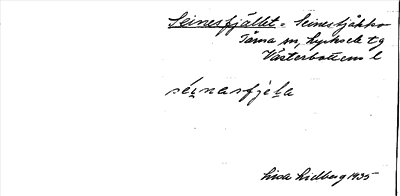 Seinesfjället = Seinestjåkko
Tärna sn, Lycksele tg
Västerbottens l
séi̯nasfjeḷa
Linda Lidberg 1935